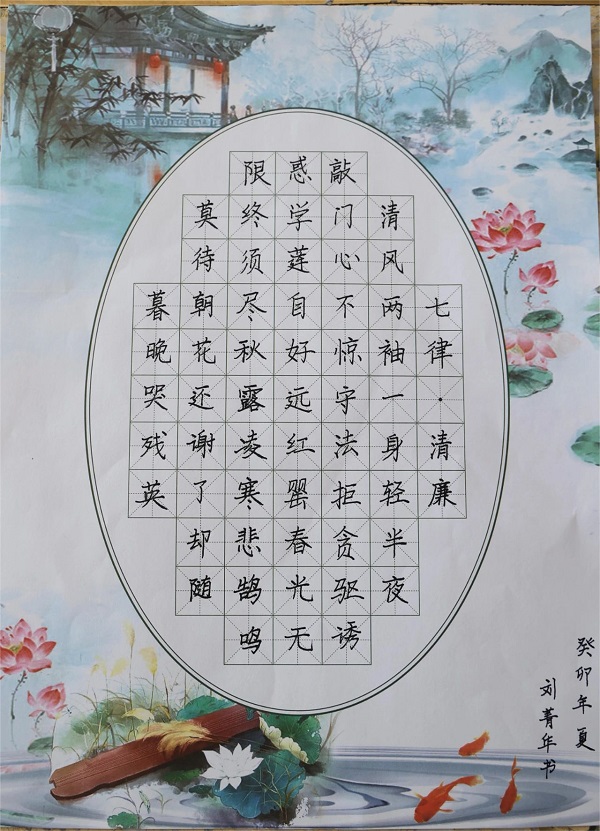 七律·清廉
清风两袖一身轻半夜
敲门心不惊守法拒贪驱诱
惑学莲自好远红罂春光无
限终须尽秋露凌寒悲鹄鸣
莫待朝花还谢了却随
暮晚哭残英
癸卯年夏
刘菁年书